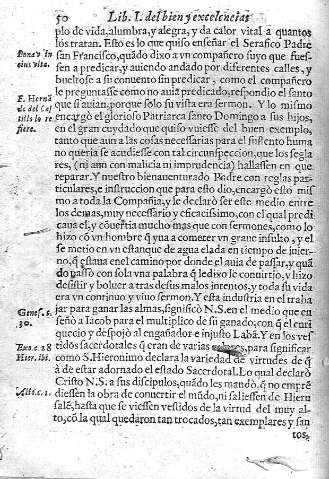 50 Lib. I. del bien y excelencias
plo de vida, alumbra, y alegra, y da calor vital a quantos
los tratan. Esto es lo que quiso enseñar el Serafico Padre
san Francisco, quādo dixo a vn compañero suyo que fues-
sen a predicar, y auiendo andado por diferentes calles, y
bueltose a su conuento sin predicar, como el compañero
le preguntasse como no auia predicado, respondio el santo
que si auian, porque solo su vista era sermon. Y lo mismo
encargò el glorioso Patriarca santo Domingo a sus hijos,
en el gran cuydado que quiso vuiesse del buen exemplo,
tanto que aun a las cosas necessarias para el sustento huma
no queria se acudiesse con tal circunspeccion, que los segla
res, (ni aun con malicia ni imprudencia) hallassen en que
reparar. Y nuestro bienauenturado Padre con reglas par
ticulares, e instruccion que para esto dio, encargò esto mis
mo a toda la Compañia, y le declarò ser este medio entre
los demas, muy necessario y eficacissimo, con el qual predi
caua el, y cōuertia mucho mas que con sermones, como lo
hizo cō vn hombre q̄ yua a cometer vn graue insulto, y el
se metio en vn estanque de agua elada en tiempo de juier-
no, q̄ estaua en el camino por donde el auia de passar, y quā
do passò con sola vna palabra q̄ le dixo le conuirtio, y hizo
desistir y boluer a tras de sus malos intentos, y toda su vida
era vn continuo y viuo sermon. Y esta industria en el traba
jar para ganar las almas, significò N.S. en el medio que en
señò a Iacob para el multiplico de su ganado, con q̄ el enri
quecio y despojò al engañador e injusto Labā. Y en los ves
tidos sacerdotales q̄ eran de varias para significar
como S. Hieronimo declara la variedad de virtudes de q̄
à de estar adornado el estado Sacerdotal. Lo qual declarò
Cristo N.S. a sus discipulos, quādo les mandò, q̄ no empré
diessen la obra de conuertir el mūdo, ni saliessen de Hieru
salē, hasta que se viessen vestidos de la virtud del muy al-
to, cō la qual quedaron tan trocados, tan exemplares y san
tos,
in
eius vita.
F. Herná
do del Cas
tillo lo re
fiere.
Genes. c.
30.
Exo. c. 28
Act. c. 1.